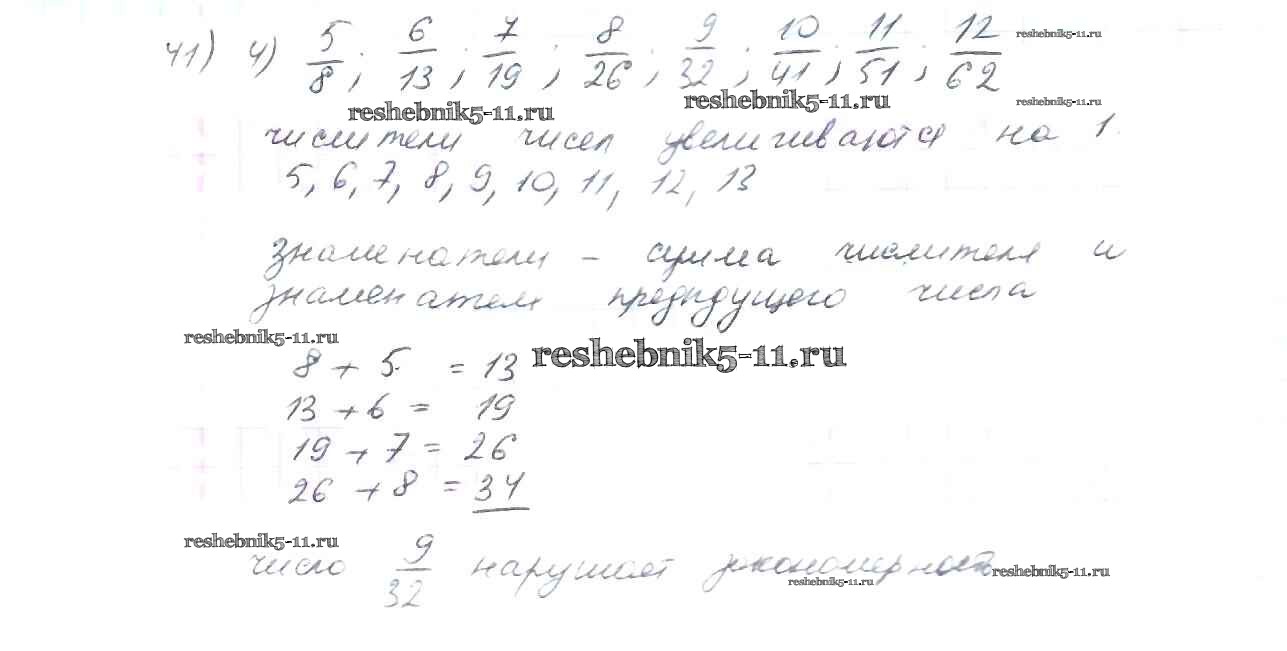 41) 4) 5/8; 6/13; 7/19; 8/26; 9/32; 10/41; 11/51; 12/62
reshebnik5-11.ru
reshebnik5-11.ru
reshebnik5-11.ru
reshebnik5-11.ru
числители чисел увеличиваются на 1.
5, 6, 7, 8, 9, 10, 11, 12, 13
Знаменатели – сумма числителя и
знаменателя предыдущего числа
reshebnik5-11.ru
reshebnik5-11.ru
8 + 5 = 13
13 + 6 = 19
19 + 7 = 26
26 + 8 = 34
reshebnik5-11.ru
число 9/32 нарушает закономерность
reshebnik5-11.ru
reshebnik5-11.ru